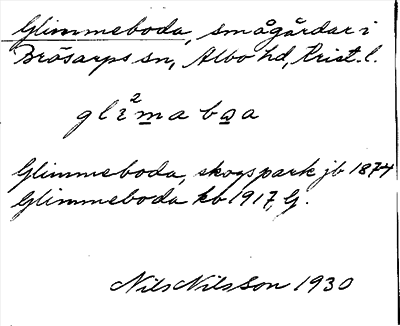 Glimmeboda, smågårdar i
Brösarps sn, Albo hd, Krist. l.
glimmeboda, skogspark jb 1874
Glimmeboda kb 1917, G.
Nils Nilsson 1930